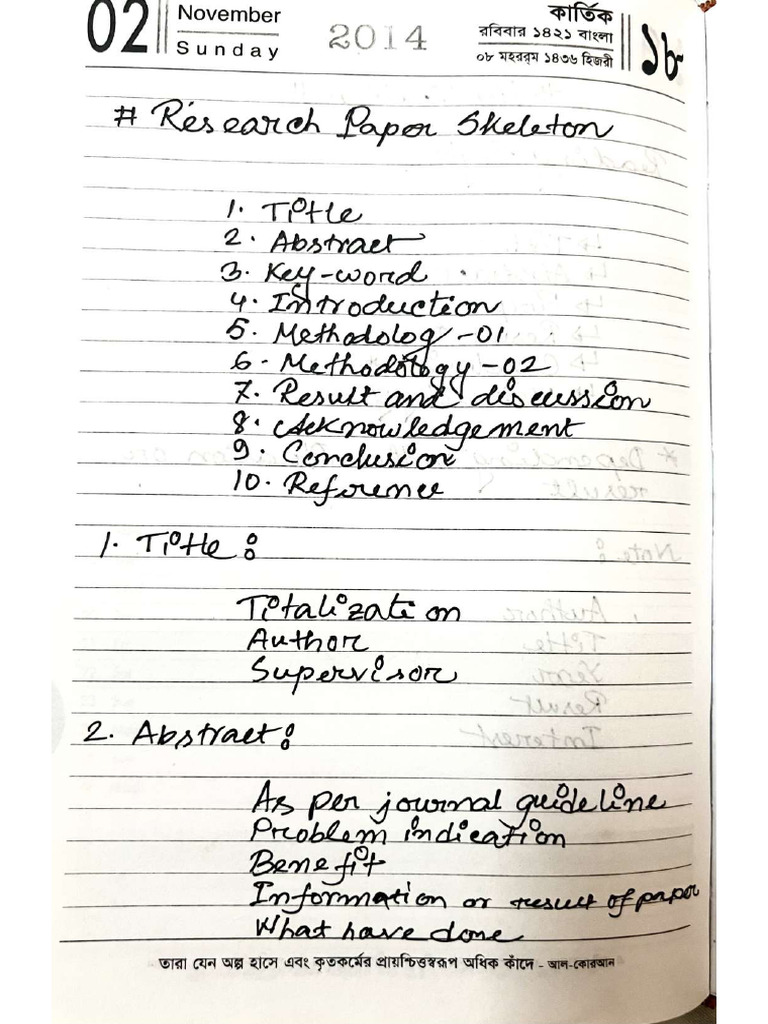 02
November
Sunday
2014
কার্তিক
রবিবার ১৪২১ বাংলা
০৮ মহররম ১৪৩৬ হিজরী
১৮
# Research Paper Skeleton
1. Title
2. Abstract
3. Key-word
4. Introduction
5. Methodolog -01
6. Methodology -02
7. Result and discussion
8. Acknowledgement
9. Conclusion
10. Reference
1. Title:
Titalization
Author
Supervisor
2. Abstract:
As per journal guideline
Problem indication
Benefit
Information or result of paper
What have done
তারা যেন অল্প হাসে এবং কৃতকর্মের প্রায়শ্চিত্তস্বরূপ অধিক কাঁদে - আল-কোরআন